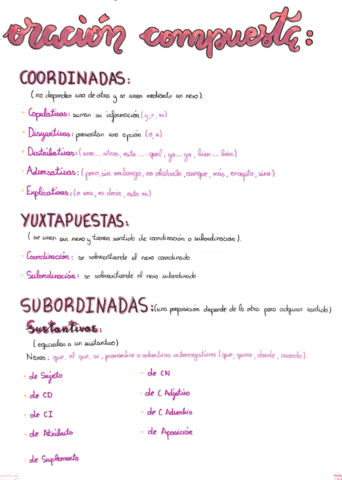 oración compuesta:
COORDINADAS:
(no dependen una de otra y se unen mediante un nexo).
· Copulativas: suman su información (y, e, ni)
· Disyuntivas: presentan una opción (o, u)
· Distributivas: (uno... otros, este... aquel, ya... ya, bien... bien)
· Adversativas: (pero, sin embargo, no obstante, aunque, más, excepto, sino)
· Explicativas: (o sea, es decir, esto es)
YUXTAPUESTAS:
(se unen sin nexo y tienen sentido de coordinación o subordinación).
· Coordinación: se sobreentiende el nexo coordinado
· Subordinación: se sobreentiende el nexo subordinado
SUBORDINADAS: (una preposición depende de la otra para adquirir sentido)
Sustantivas:
(equivalen a un sustantivo)
Nexos: que, el que, si, pronombres o adverbios interrogativos (que, quien, donde, cuando)
· de Sujeto
· de CN
· de CD
· de C Adjetivo
· de CI
· de C Adverbio
· de Atributo
· de Aposición
· de Suplemento